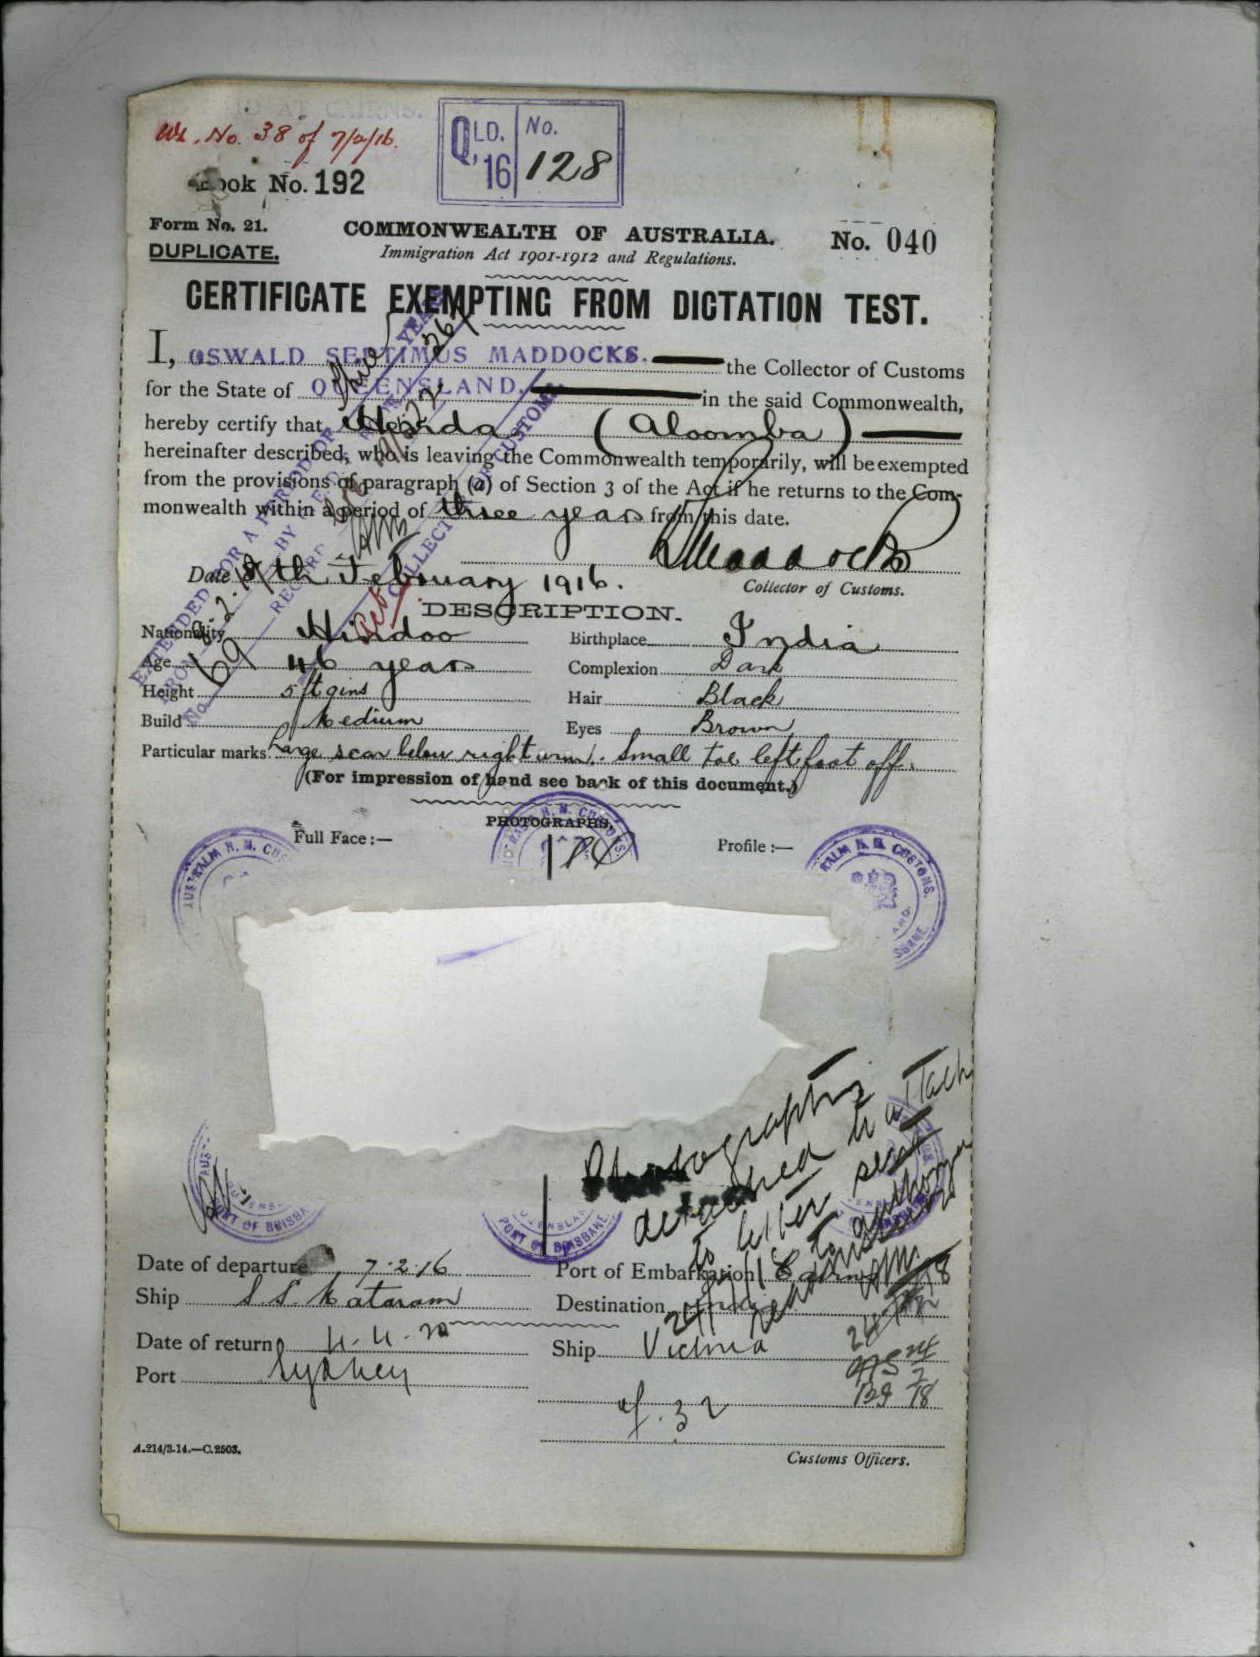 Wt. No. 38 of 7/2/16.
QLD. '16 No. 128
Book No. 192
Form No. 21.
COMMONWEALTH OF AUSTRALIA.
No. 040
DUPLICATE.
Immigration Act 1901-1912 and Regulations.
CERTIFICATE EXEMPTING FROM DICTATION TEST.
I, OSWALD SEPTIMUS MADDOCKS. the Collector of Customs
for the State of QUEENSLAND. in the said Commonwealth,
hereby certify that (Aloomba)
hereinafter described, who is leaving the Commonwealth temporarily, will be exempted
from the provisions of paragraph (a) of Section 3 of the Act if he returns to the Com-
monwealth within a period of three years from this date.
Maddocks
Date February 1916.
Collector of Customs.
EXTENDED FOR A PERIOD OF YEARS
FROM BY
No. 69 RECORD
COLLECTOR OF CUSTOMS
DESCRIPTION.
Nationality Hindoo
Birthplace India
Age 46 years
Complexion Dark
Height 5 ft 9 ins
Hair Black
Build Medium
Eyes Brown
Particular marks Large scar below right arm. Small toe left foot off.
(For impression of hand see back of this document.)
PHOTOGRAPHS.
Full Face :—
Profile :—
PORT OF BRISBANE
PORT OF BRISBANE
Photographs
detached & attach
to letter sent
to
24/7/18
Date of departure 7.2.16
Port of Embarkation Cairns
Ship S.S. Mataram
Destination India
Date of return 4.4.20
Ship Victoria
Port Sydney
4.32
A.214/3.14.—C.2503.
Customs Officers.